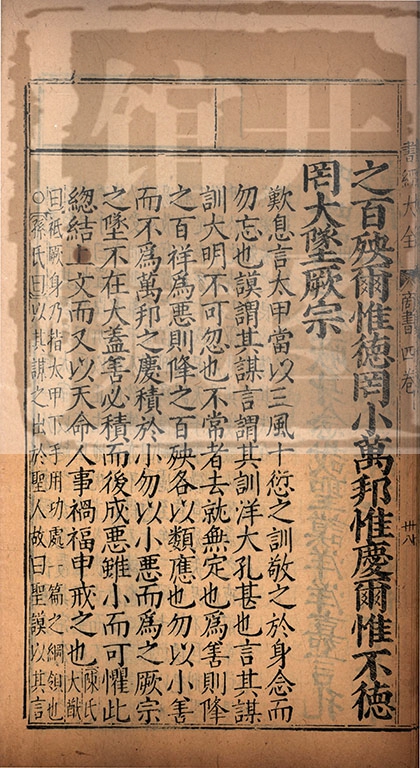 之百殃爾惟德罔小萬邦惟慶爾惟不德
罔大墜厥宗
歎息言太甲當以三風十愆之訓敬之於身念而
勿忘也謨謂其謀言謂其訓洋大孔甚也言其謀
訓大明不可忽也不常者去就無定也為善則降
之百祥為惡則降之百殃各以類應也勿以小善
而不為萬邦之慶積於小勿以小惡而為之厥宗
之墜不在大蓋善必積而後成惡雖小而可懼此
總結上文而又以天命人事禍福申戒之也陳氏大猷
曰祗厥身乃指太甲下手用功處一篇之綱領也
○孫氏曰以其謀之出於聖人故曰聖謨以其言
書經大全 商書四卷 卅八